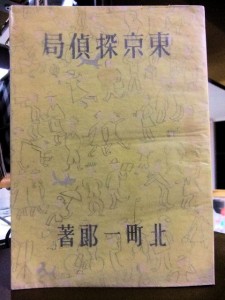 東京探偵局
北町一郎著